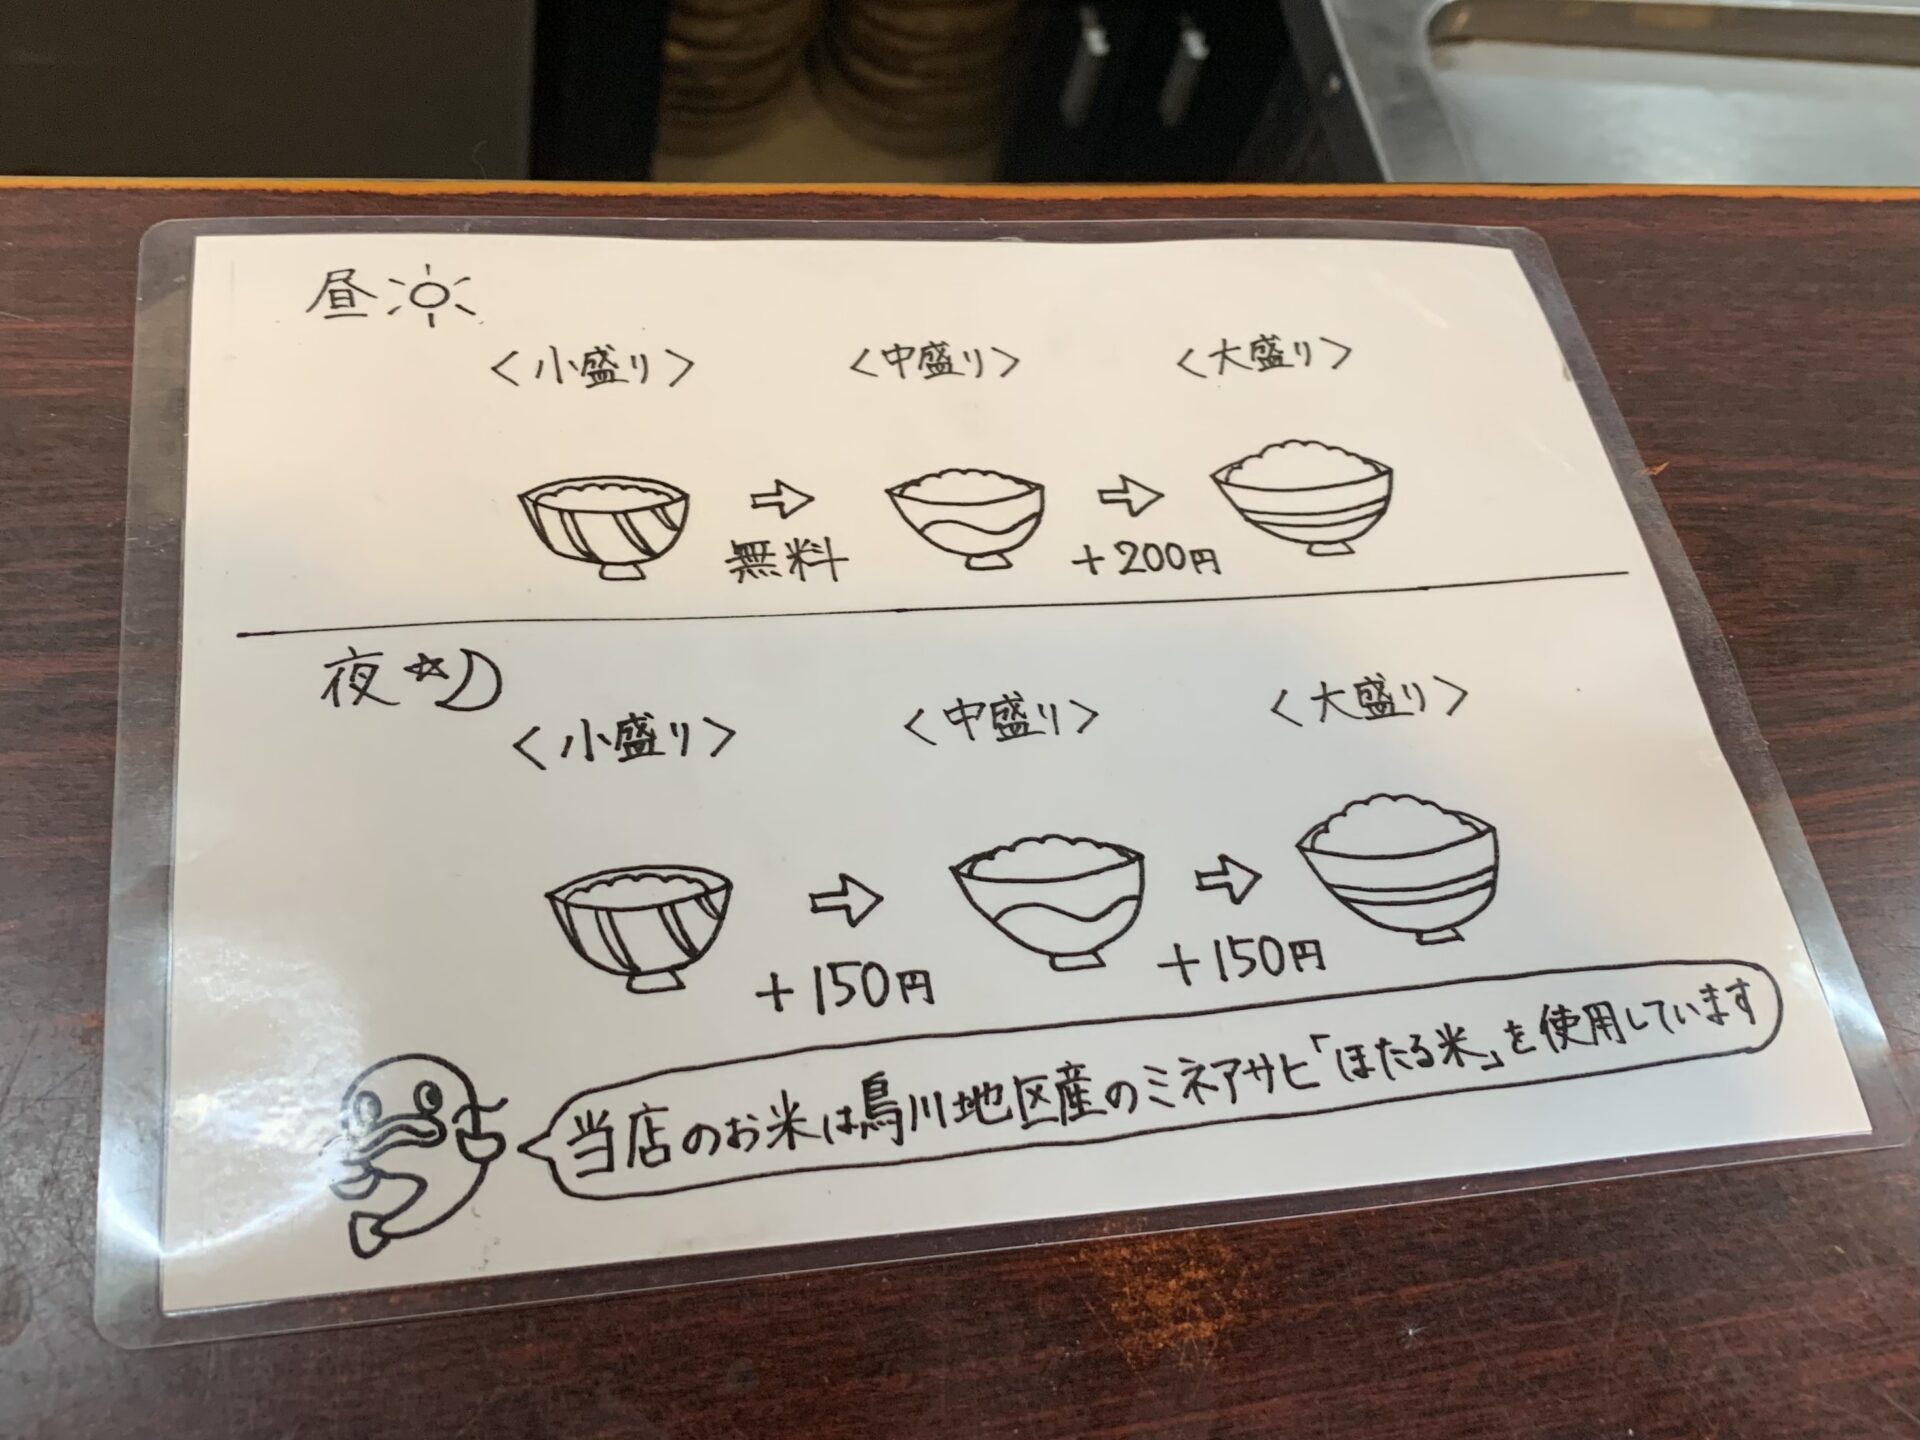 昼
<小盛り> <中盛り> <大盛り>
無料 +200円
夜
<小盛り> <中盛り> <大盛り>
+150円 +150円
当店のお米は鳥川地区産のミネアサヒ「ほたる米」を使用しています